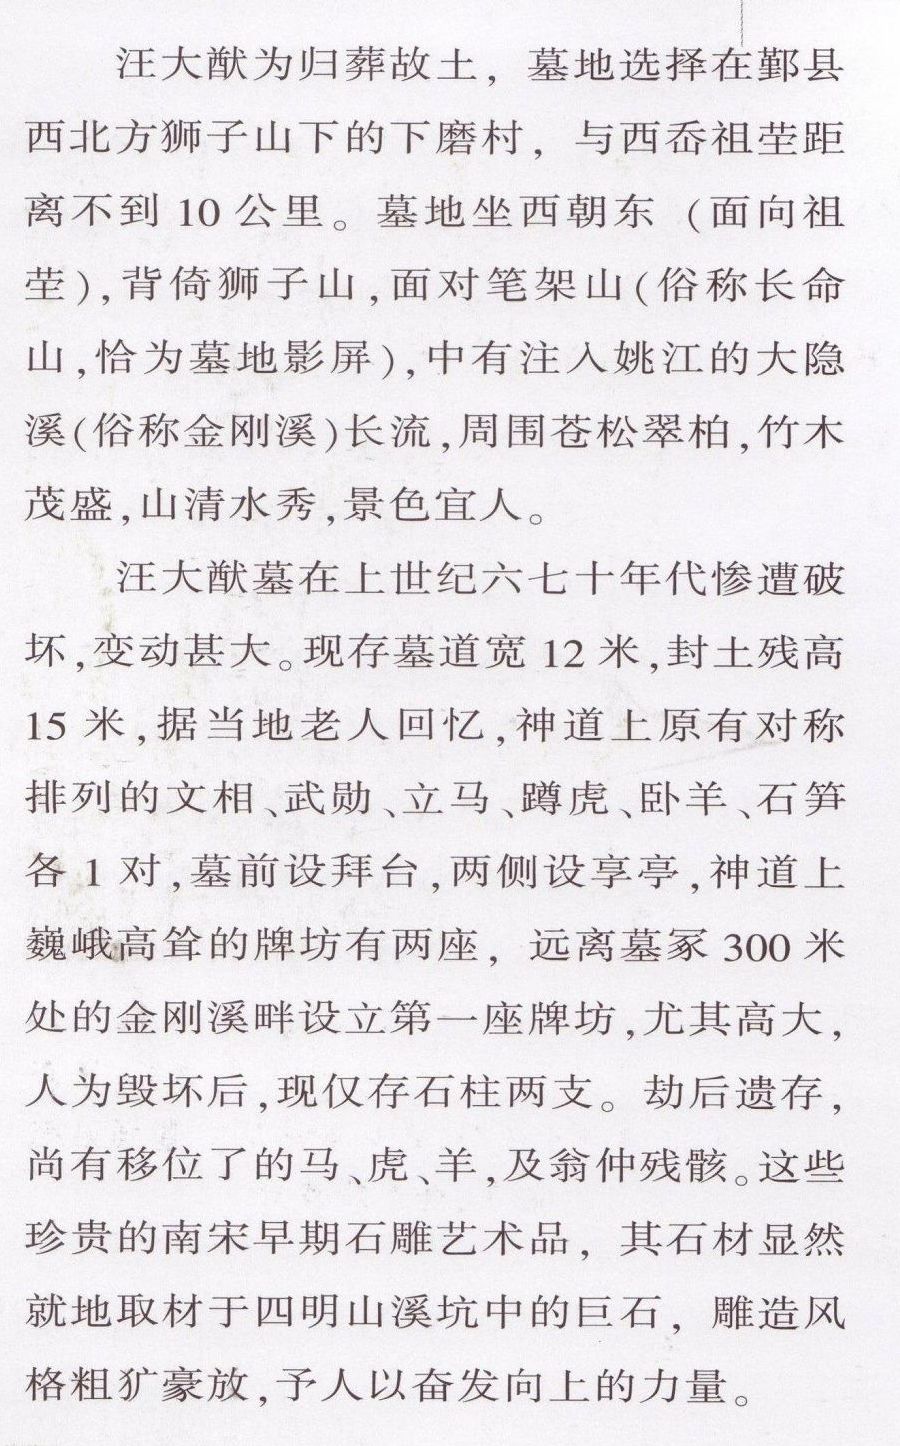 汪大猷为归葬故土，墓地选择在鄞县
西北方狮子山下的下磨村，与西岙祖茔距
离不到 10 公里。墓地坐西朝东（面向祖
茔），背倚狮子山，面对笔架山（俗称长命
山，恰为墓地影屏），中有注入姚江的大隐
溪（俗称金刚溪）长流，周围苍松翠柏，竹木
茂盛，山清水秀，景色宜人。
汪大猷墓在上世纪六七十年代惨遭破
坏，变动甚大。现存墓道宽 12 米，封土残高
15 米，据当地老人回忆，神道上原有对称
排列的文相、武勋、立马、蹲虎、卧羊、石笋
各 1 对，墓前设拜台，两侧设享亭，神道上
巍峨高耸的牌坊有两座，远离墓冢 300 米
处的金刚溪畔设立第一座牌坊，尤其高大，
人为毁坏后，现仅存石柱两支。劫后遗存，
尚有移位了的马、虎、羊，及翁仲残骸。这些
珍贵的南宋早期石雕艺术品，其石材显然
就地取材于四明山溪坑中的巨石，雕造风
格粗犷豪放，予人以奋发向上的力量。